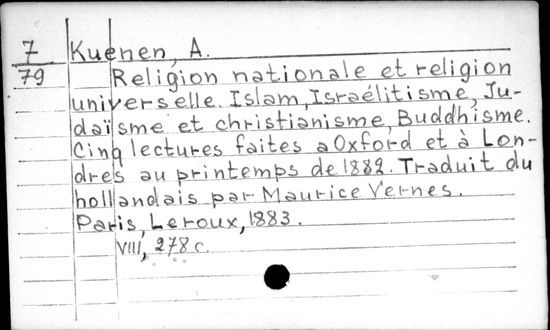 7 Kuenen, A.
79 Religion nationale et religion
universelle. Islam, Israélitisme, Ju-
daïsme et christianisme, Buddhisme.
Cinq lectures faites a Oxford et à Lon-
dres au printemps de 1882. Traduit du
hollandais par Maurice Vernes.
Paris, Leroux, 1883.
VIII, 278 c.